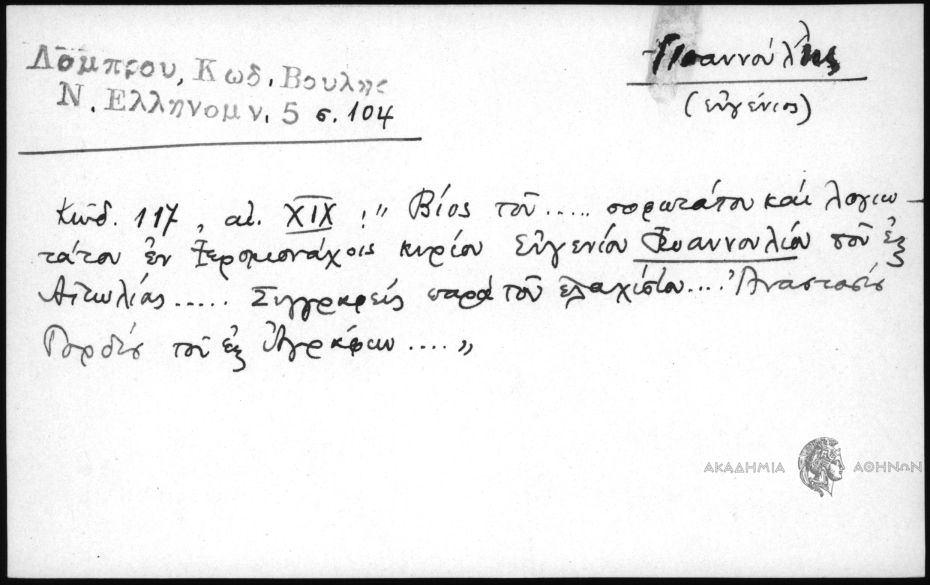 Λάμπρου, Κωδ. Βουλης
Ν. Ελληνομν. 5 σ. 104
Ἰωαννούλης
(εὐγένιος)
Κώδ. 117, αἰ. XIX : " Βίος τοῦ ..... σοφωτάτου καί λογιω-
τάτου ἐν Ἱερομονάχοις κυρίου Εὐγενίου Ἰωαννουλίου τοῦ ἐξ
Αἰτωλίας ..... Συγγραφείς παρά τοῦ ἐλαχίστου .... Ἀναστασίου
Γορδίου τοῦ ἐξ Ἀγράφων .... "
ΑΚΑΔΗΜΙΑ ΑΘΗΝΩΝ